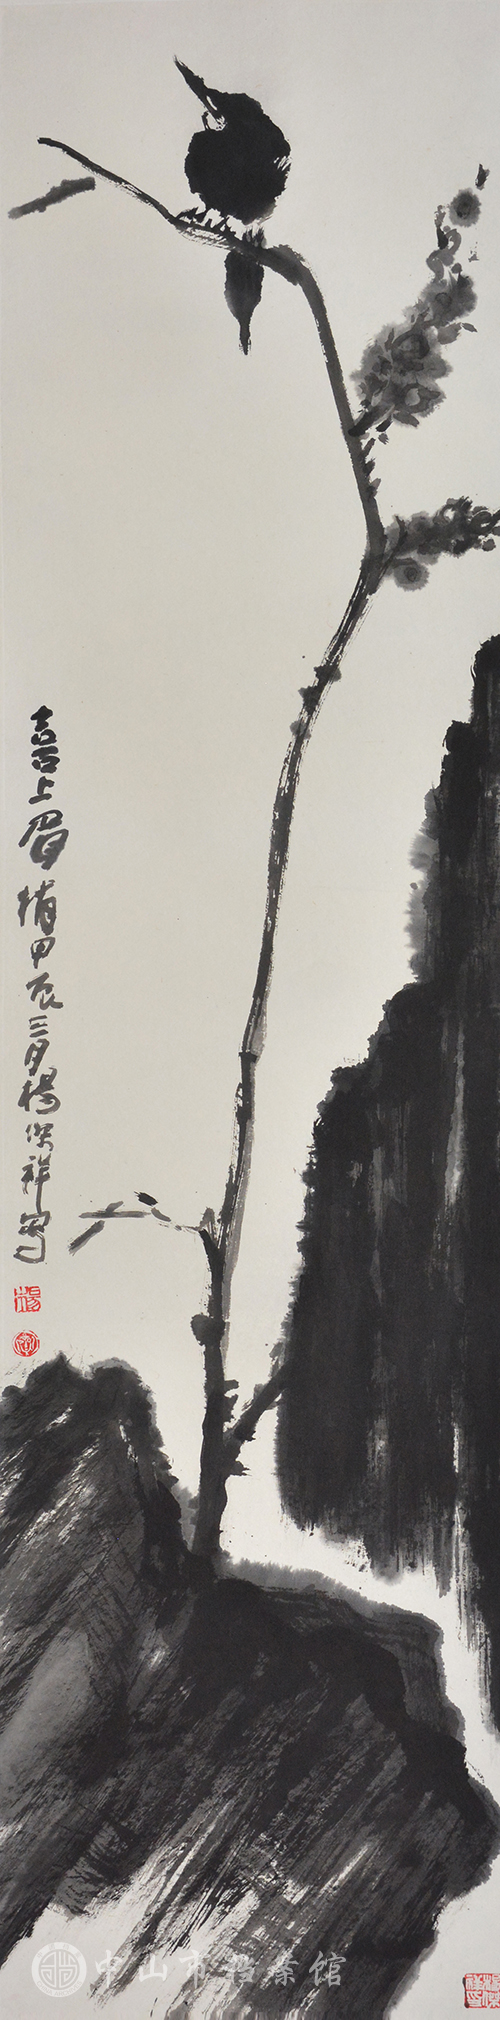 喜上眉梢甲辰三月楊傑祥寫
楊
中山市档案馆